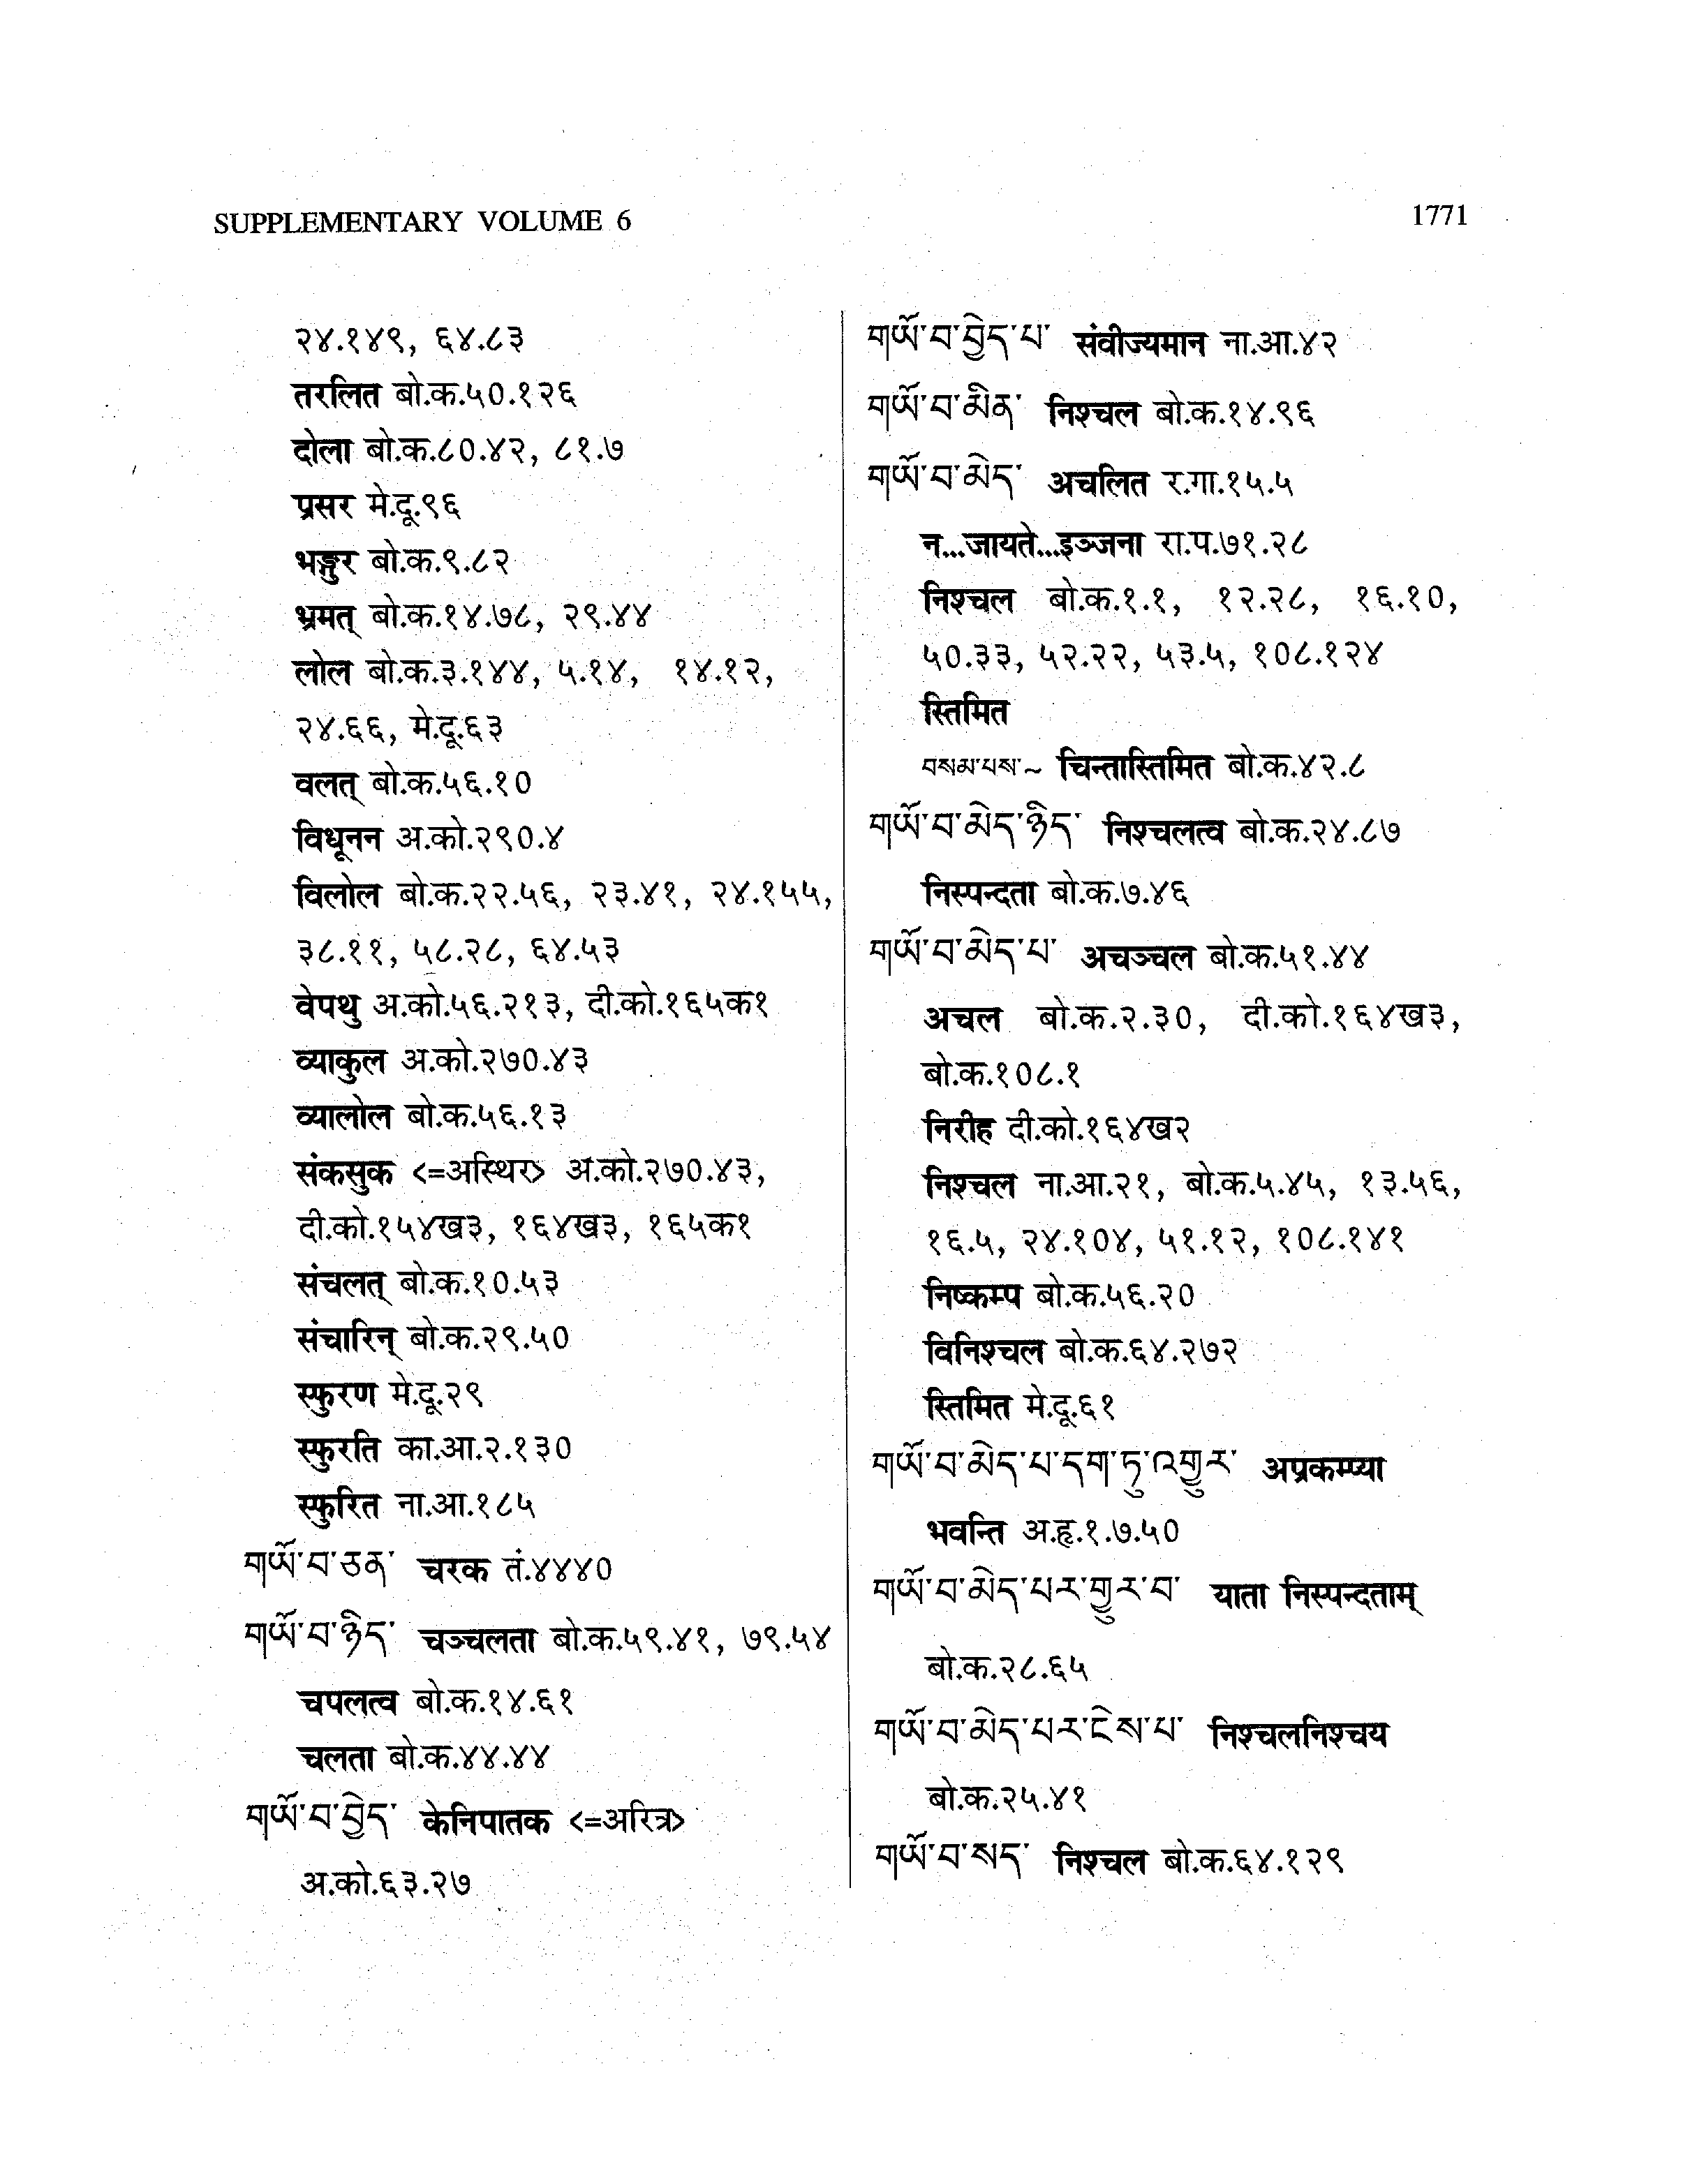 SUPPLEMENTARY VOLUME 6
1771
२४.१४९, ६४.८३
तरलित बो.क.५०.१२६
दोला बो.क.८०.४२, ८१.७
प्रसर मे.दू.९६
भङ्गुर बो.क.९.८२
भ्रमत् बो.क.१४.७८, २९.४४
लोल बो.क.३.१४४, ५.१४, १४.१२,
२४.६६, मे.दू.६३
वलत् बो.क.५६.१०
विधूनन अ.को.२९०.४
विलोल बो.क.२२.५६, २३.४१, २४.१५५,
३८.११, ५८.२८, ६४.५३
वेपथु अ.को.५६.२१३, दी.को.१६५क१
व्याकुल अ.को.२७०.४३
व्यालोल बो.क.५६.१३
संकसुक <=अस्थिर> अ.को.२७०.४३,
दी.को.१५४ख३, १६४ख३, १६५क१
संचलत् बो.क.१०.५३
संचारिन् बो.क.२९.५०
स्फुरण मे.दू.२९
स्फुरति का.आ.२.१३०
स्फुरित ना.आ.१८५
གཡོ་བ་ཅན་ चरक तं.४४४०
གཡོ་བ་ཉིད་ चञ्चलता बो.क.५९.४१, ७९.५४
चपलत्व बो.क.१४.६१
चलता बो.क.४४.४४
གཡོ་བ་བྱེད་ केनिपातक <=अरित्र>
अ.को.६३.२७
གཡོ་བ་བྱེད་པ་ संवीज्यमान ना.आ.४२
གཡོ་བ་མིན་ निश्चल बो.क.१४.९६
གཡོ་བ་མེད་ अचलित र.गा.१५.५
न...जायते...इञ्जना रा.प.७१.२८
निश्चल बो.क.१.१, १२.२८, १६.१०,
५०.३३, ५२.२२, ५३.५, १०८.१२४
स्तिमित
བསམ་པས་~ चिन्तास्तिमित बो.क.४२.८
གཡོ་བ་མེད་ཉིད་ निश्चलत्व बो.क.२४.८७
निस्पन्दता बो.क.७.४६
གཡོ་བ་མེད་པ་ अचञ्चल बो.क.५१.४४
अचल बो.क.२.३०, दी.को.१६४ख३,
बो.क.१०८.१
निरीह दी.को.१६४ख२
निश्चल ना.आ.२१, बो.क.५.४५, १३.५६,
१६.५, २४.१०४, ५१.१२, १०८.१४१
निष्कम्प बो.क.५६.२०
विनिश्चल बो.क.६४.२७२
स्तिमित मे.दू.६१
གཡོ་བ་མེད་པ་དག་ཏུ་འགྱུར་ अप्रकम्प्या
भवन्ति अ.हृ.१.७.५०
གཡོ་བ་མེད་པར་གྱུར་བ་ याता निस्पन्दताम्
बो.क.२८.६५
གཡོ་བ་མེད་པར་ངེས་པ་ निश्चलनिश्चय
बो.क.२५.४१
གཡོ་བ་སད་ निश्चल बो.क.६४.१२९